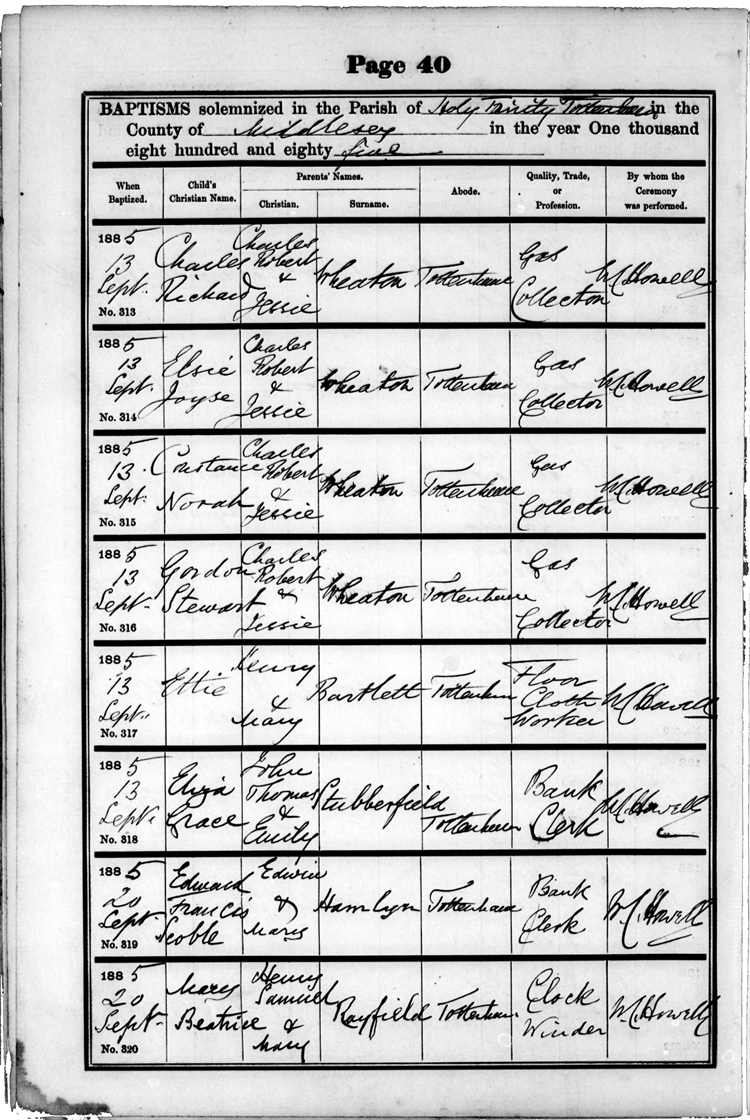 Page 40
BAPTISMS solemnized in the Parish of Holy Trinity Tottenham in the
County of Middlesex in the year One thousand
eight hundred and eighty five
When Baptized.
Child's Christian Name.
Parents' Names.
Christian.
Surname.
Abode.
Quality, Trade, or Profession.
By whom the Ceremony was performed.
1885 13 Sept. No. 313
Charles Richard
Charles Robert & Jessie
Wheaton
Tottenham
Gas Collector
W. C. Howell
1885 13 Sept. No. 314
Elsie Joyse
Charles Robert & Jessie
Wheaton
Tottenham
Gas Collector
W. C. Howell
1885 13 Sept. No. 315
Constance Norah
Charles Robert & Jessie
Wheaton
Tottenham
Gas Collector
W. C. Howell
1885 13 Sept. No. 316
Gordon Stewart
Charles Robert & Jessie
Wheaton
Tottenham
Gas Collector
W. C. Howell
1885 13 Sept. No. 317
Ettie
Henry & Mary
Bartlett
Tottenham
Floor Cloth Worker
W. C. Howell
1885 13 Sept. No. 318
Eliza Grace
John Thomas & Emily
Stubberfield
Tottenham
Bank Clerk
W. C. Howell
1885 20 Sept. No. 319
Edward Francis Scoble
Edwin & Mary
Hamlyn
Tottenham
Bank Clerk
W. C. Howell
1885 20 Sept. No. 320
Mary Beatrice
Henry Samuel & Mary
Rayfield
Tottenham
Clock Winder
W. C. Howell